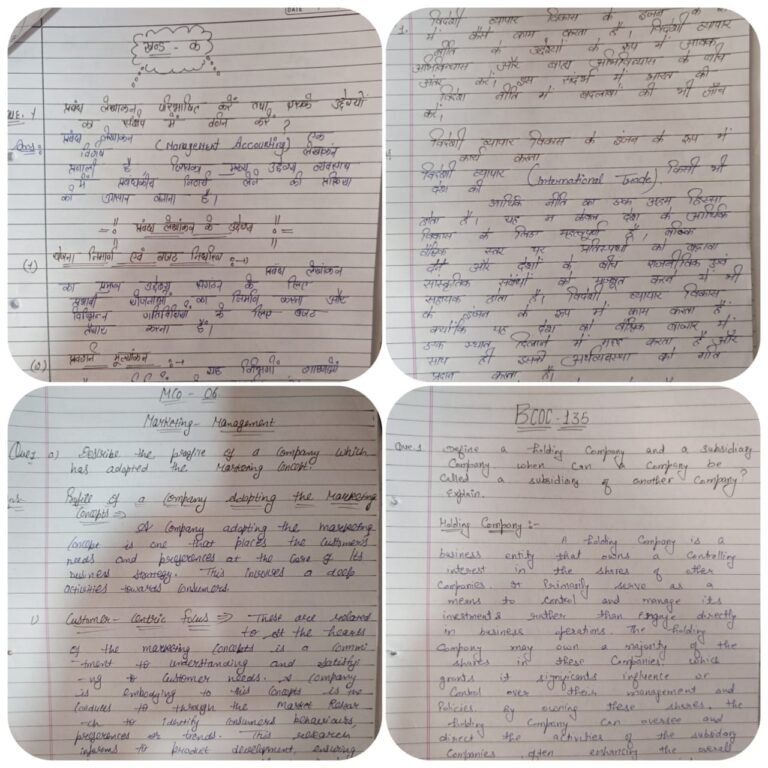 DATE
खण्ड - क
QUE. 1
प्रबंध लेखांकन परिभाषित करें तथा इसके उद्देश्यों
का संक्षेप में वर्णन करें ?
Ans:-
प्रबंध लेखांकन (Management Accounting) एक
विशेष लेखांकन
प्रणाली है जिसका मुख्य उद्देश्य व्यवसाय
में प्रबंधकीय निर्णय लेने की प्रक्रिया
को आसान बनाना है।
प्रबंध लेखांकन के उद्देश्य
(1) योजना निर्माण एवं बजट निर्धारण :-
प्रबंध लेखांकन
का प्रमुख उद्देश्य संगठन के लिए
प्रभावी योजनाओं का निर्माण करना और
विभिन्न गतिविधियों के लिए बजट
तैयार करना है।
(2) प्रदर्शन मूल्यांकन :-
यह विभिन्न
1. विदेशी व्यापार विकास के इंजन के
में कैसे काम करता है। विदेशी व्यापार
नीति के उद्देश्यों के रूप में आवक
अभिविन्यास और बाह्य अभिविन्यास के बीच
अंतर करें। इस संदर्भ में भारत की
विदेश नीति में बदलावों की भी जाँच
करें।
विदेशी व्यापार विकास के इंजन के रूप में
कार्य करना
विदेशी व्यापार (International Trade) किसी भी
देश की
आर्थिक नीति का एक अहम हिस्सा
होता है। यह न केवल देश के आर्थिक
विकास के लिए महत्वपूर्ण है, बल्कि
वैश्विक स्तर पर प्रतिस्पर्धा को बढ़ावा
देने और देशों के बीच राजनीतिक एवं
सांस्कृतिक संबंधों को मजबूत करने में भी
सहायक होता है। विदेशी व्यापार विकास
के इंजन के रूप में काम करता है
क्योंकि यह देश को वैश्विक बाजार में
एक स्थान दिलाने में मदद करता है और
साथ ही इसकी अर्थव्यवस्था को गति
प्रदान करता है।
MCO - 06
Marketing - Management
Ques. a) Describe the profile of a Company which
has adopted the Marketing Concept.
Ans.
Profile of a Company Adopting the Marketing
Concepts ⇒
A Company adopting the marketing
Concept is one that places the Customer's
needs and preferences at the Core of its
business strategy. This involves a deep
activities towards Consumers.
1) Customer-Centric Focus ⇒ These are related
to at the hearts
of the marketing Concepts is a Commi
-tment to understanding and satisfyi
-ng to Customer needs. A Company
is embodying to this Concepts is
Conducts to through the Market Resear
-ch to identify Consumers behaviours,
preferences or trends. This research
informs to product development, ensuring
BCOC - 135
Que.1 Define a Holding Company and a subsidiary
Company when Can a Company be
Called a subsidiary of another Company?
Explain.
Holding Company :-
A Holding Company is a
business entity that owns a Controlling
interest in the shares of other
Companies. It Primarily serve as a
means to Control and manage its
investments rather than Engage directly
in business operations. The Holding
Company may own a majority of the
shares in these Companies, which
grants it significants influence or
Control over their management and
Policies. By owning these shares, the
Holding Company Can oversee and
direct the activities of the subsidary
Companies often enhancing the overall